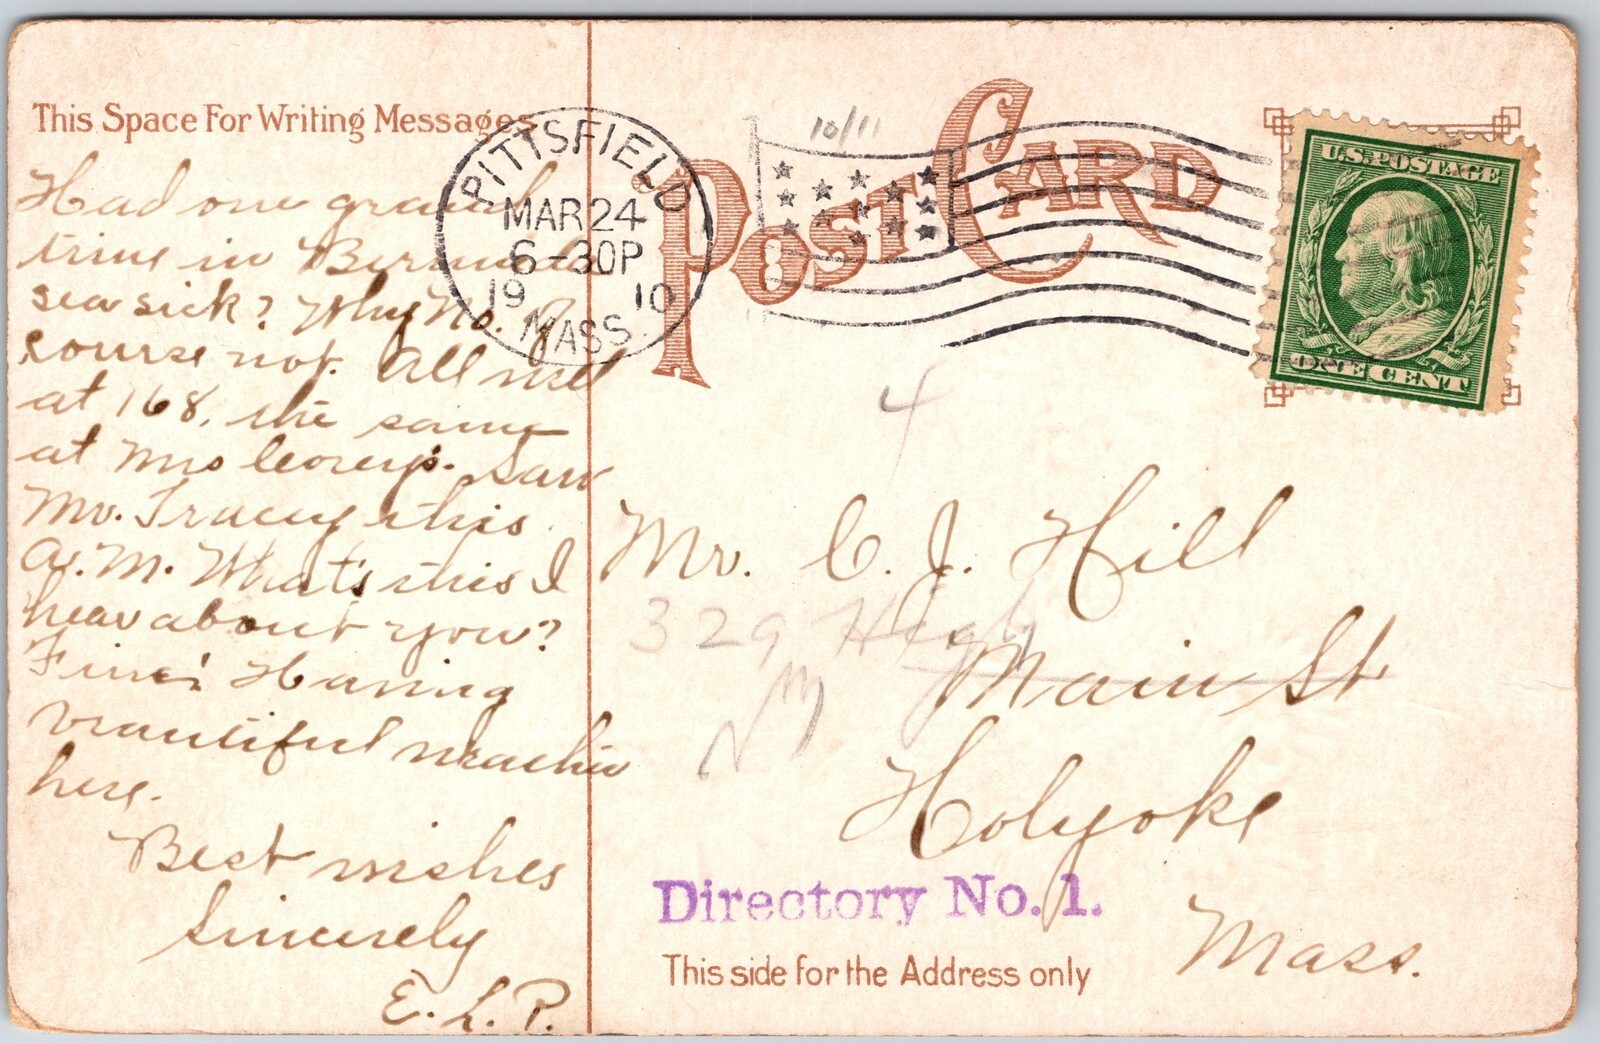 This Space For Writing Messages
Had one grand
time in Bermuda
sea sick? Why No. Of
course not. All well
at 168, the same
at Mrs
Saw
Mr. Tracey this
A.M. What's this I
hear about you?
Fine! Having
beautiful weather
here.
Best wishes
Sincerely
E. L. P.
PITTSFIELD
MAR 24
6-30P
19 10
MASS.
POST CARD
10/11
U.S. POSTAGE
ONE CENT
4
Mr. C. J. Hill
329 High
Main St
Holyoke
Mass.
Directory No. 1.
This side for the Address only